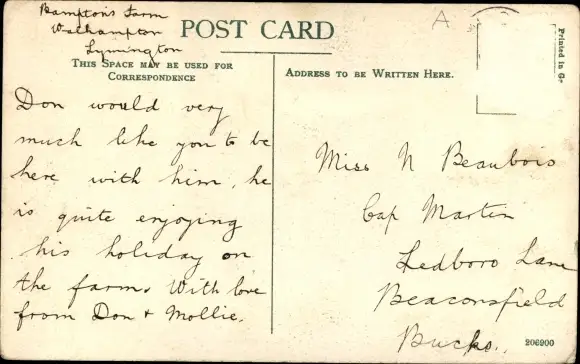 Bampton's Farm
Walhampton
Lymington
POST CARD
THIS SPACE MAY BE USED FOR
CORRESPONDENCE
ADDRESS TO BE WRITTEN HERE.
A
Printed in
Don would very
much like you to be
here with him, he
is quite enjoying
his holiday on
the farm. With love
from Don & Mollie.
Miss N Beaubois
Cap Martin
Ledboro Lane
Beaconsfield
Bucks.
206900